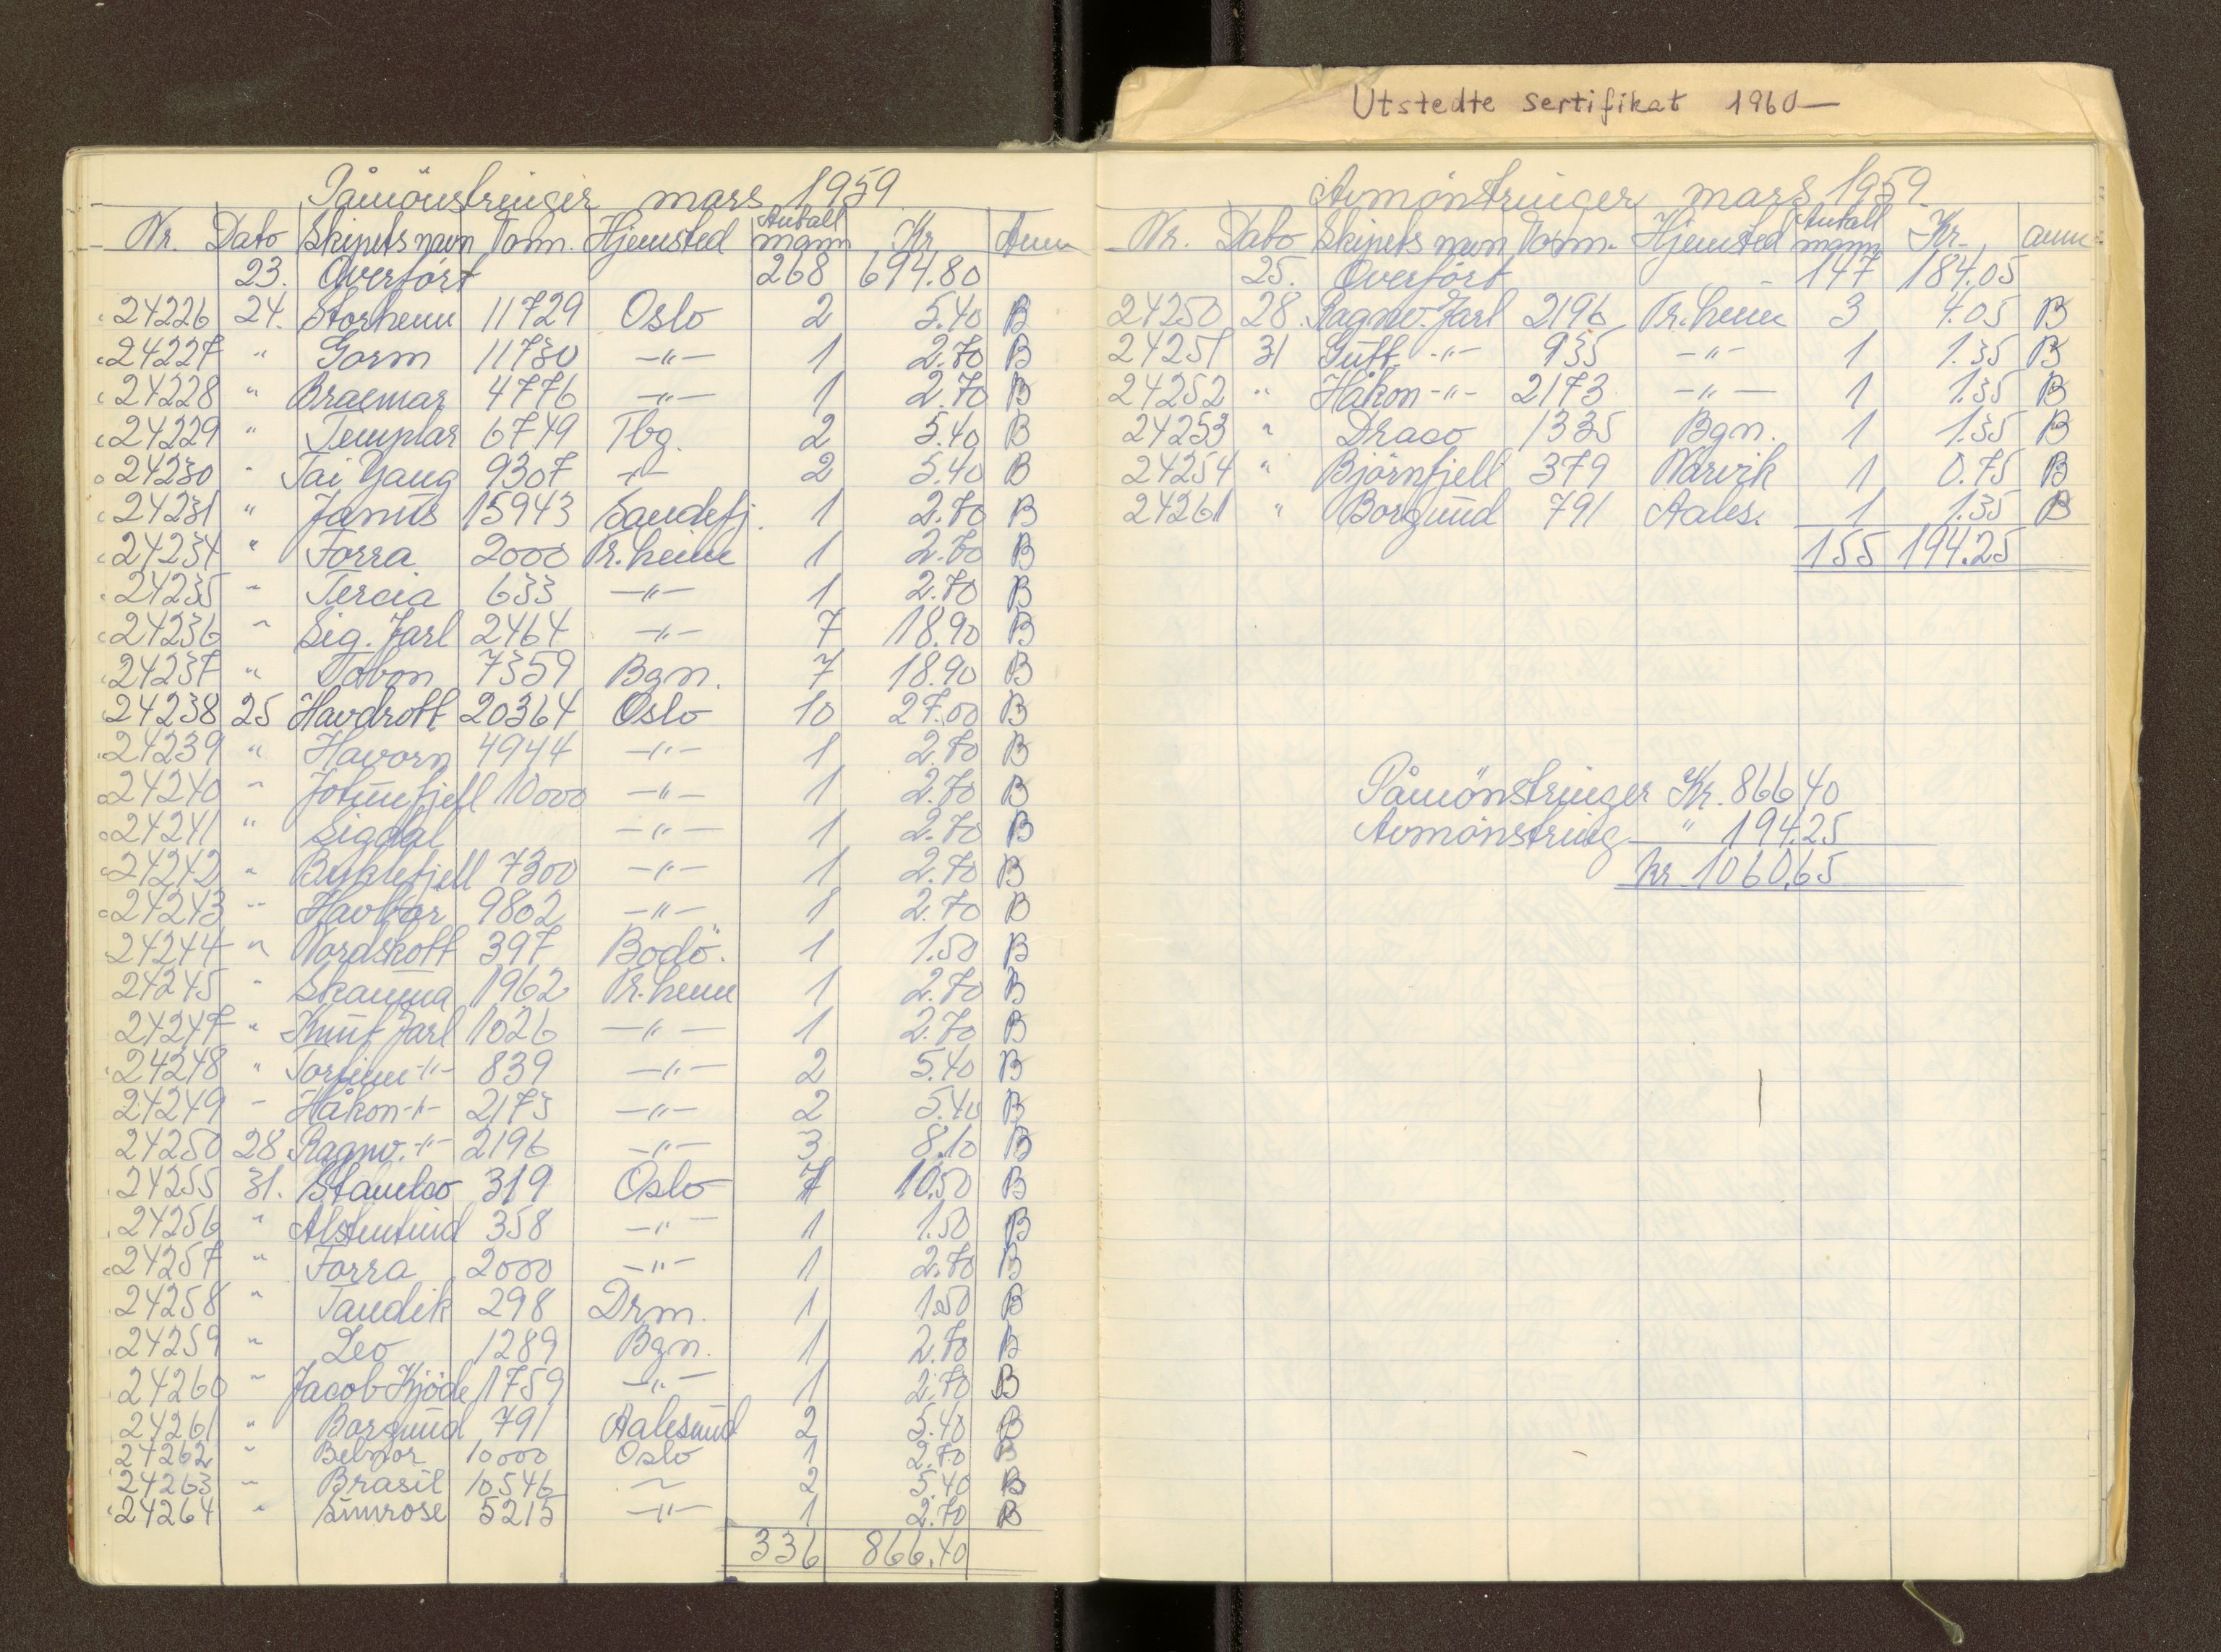 Utstedte sertifikat 1960—
Påmönstringer mars 1959
Nr. Dato Skipets navn Tonn. Hjemsted Antall mann Kr. Anm
23. Overfört 268 694.80
24226 24. Storheim 11729 Oslo 2 5.40 B
24227 " Gorm 11730 -"- 1 2.70 B
24228 " Braemar 4776 -"- 1 2.70 B
24229 " Templar 6749 Tbg. 2 5.40 B
24230 " Tai Yang 9307 -"- 2 5.40 B
24231 " Janus 15943 Sandefj. 1 2.70 B
24234 " Forra 2000 Tr.heim 1 2.70 B
24235 " Tercia 633 -"- 1 2.70 B
24236 " Sig. Jarl 2464 -"- 7 18.90 B
24237 " Tobon 7359 Bgn. 7 18.90 B
24238 25 Havdrott 20364 Oslo 10 27.00 B
24239 " Havorn 4944 -"- 1 2.70 B
24240 " Jotunfjell 10000 -"- 1 2.70 B
24241 " Sigdal -"- 1 2.70 B
24242 " Byklefjell 7300 -"- 1 2.70 B
24243 " Havbör 9802 -"- 1 2.70 B
24244 " Nordskott 397 Bodö. 1 1.50 B
24245 " Skauma 1962 Tr.heim 1 2.70 B
24247 " Knut Jarl 1026 -"- 1 2.70 B
24248 " Torfinn -"- 839 -"- 2 5.40 B
24249 " Håkon -"- 2173 -"- 2 5.40 B
24250 28. Ragnv. -"- 2196 -"- 3 8.10 B
24255 31. Stamlco 319 Oslo 7 10.50 B
24256 " Alstentind 358 -"- 1 1.50 B
24257 " Forra 2000 -"- 1 2.70 B
24258 " Tandik 298 Drm. 1 1.50 B
24259 " Leo 1289 Bgn. 1 2.70 B
24260 " Jacob Kjöde 1759 -"- 1 2.70 B
24261 " Borgund 791 Aalesund 2 5.40 B
24262 " Belnor 10000 Oslo 1 2.70 B
24263 " Brasil 10546 " 2 5.40 B
24264 " Simrose 5215 -"- 1 2.70 B
336 866.40
Avmönstringer mars 1959
Nr. Dato Skipets navn Tonn. Hjemsted Antall mann Kr. anm
25. Overfört 147 184.05
24250 28. Ragnv. Jarl 2196 Tr.heim 3 4.05 B
24251 31 Gutt. -"- 935 -"- 1 1.35 B
24252 " Håkon -"- 2173 -"- 1 1.35 B
24253 " Draco 1335 Bgn. 1 1.35 B
24254 " Björnfjell 379 Narvik 1 0.75 B
24261 " Borgund 791 Aales. 1 1.35 B
155 194.25
Påmönstringer Kr. 866.40
Avmönstring " 194.25
Kr 1060.65